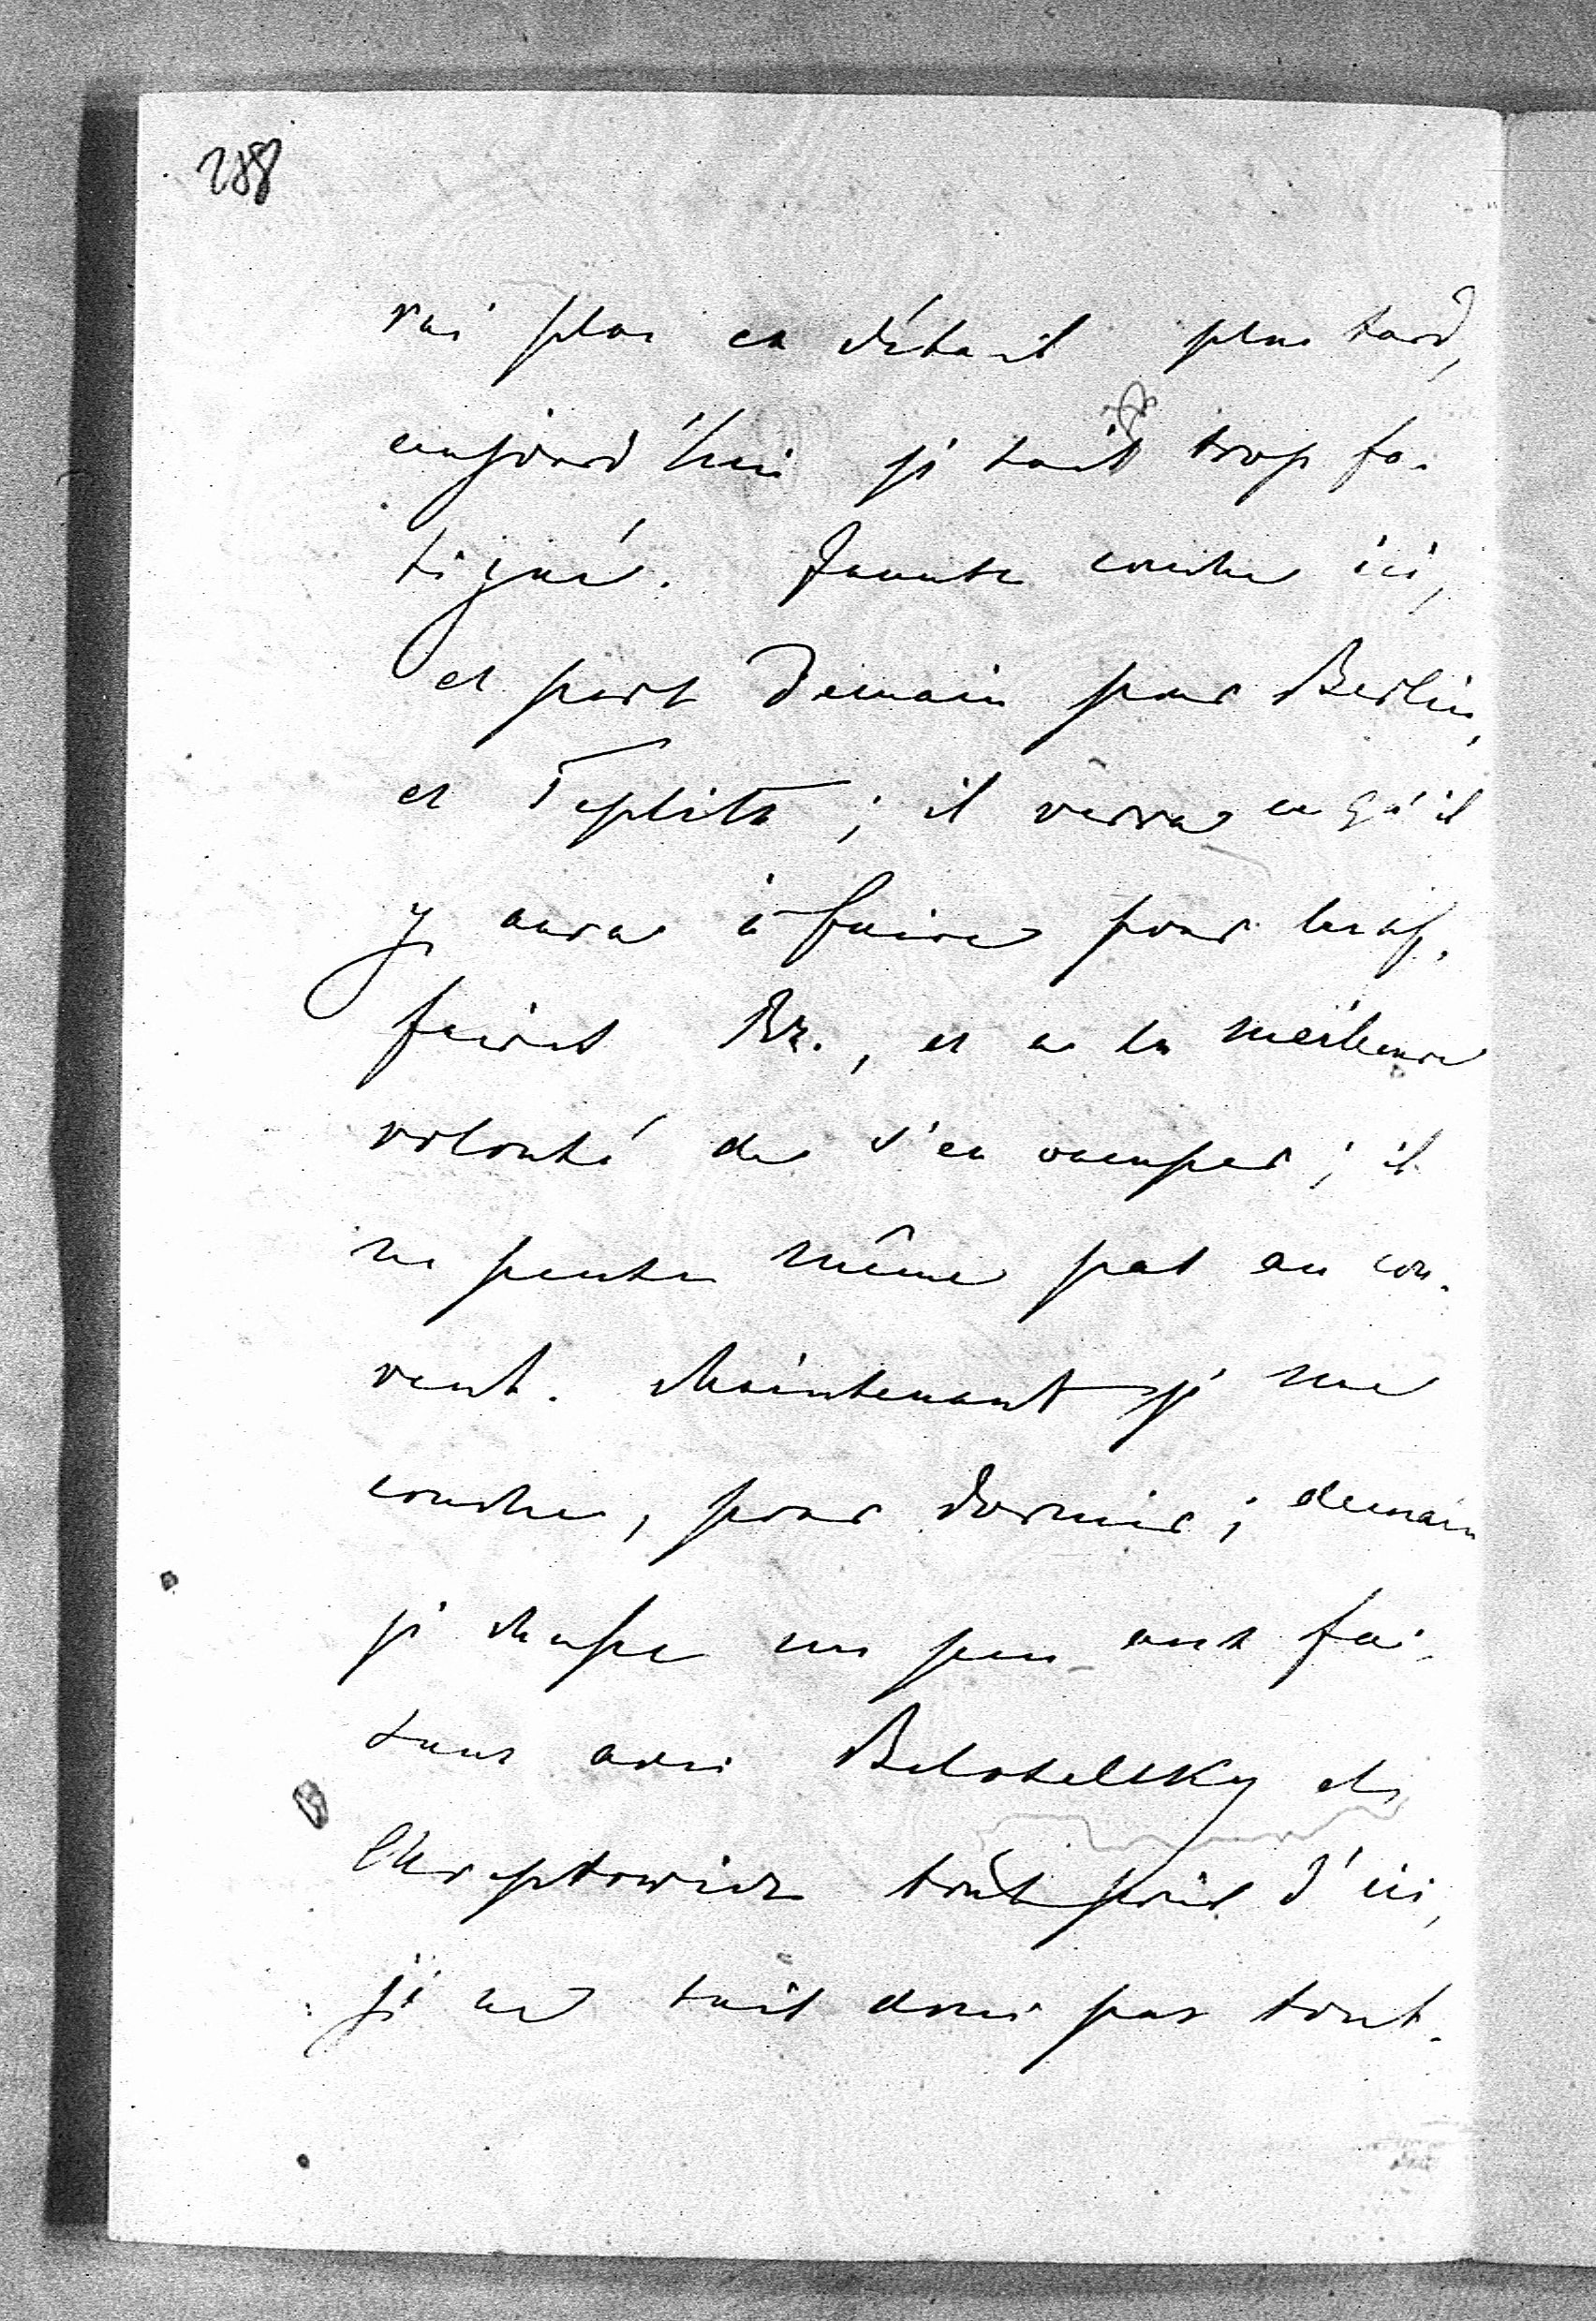 288
rai plus en détail plus tard,
aujourd'hui je suis trop fa-
tigué. couche ici,
et part demain pour Berlin,
et Teplitz ; il verra ce qu'il
y aura à faire pour les af-
faires Br., et a la meilleure
volonté de s'en occuper ; il
ne pense même pas au cou-
vent. Maintenant je me
couche, pour dormir ; demain
je chasse un peu aux fai-
sans avec Beloselsky et
Chreptowicz tout près d'ici,
je ne suis donc pas tout-